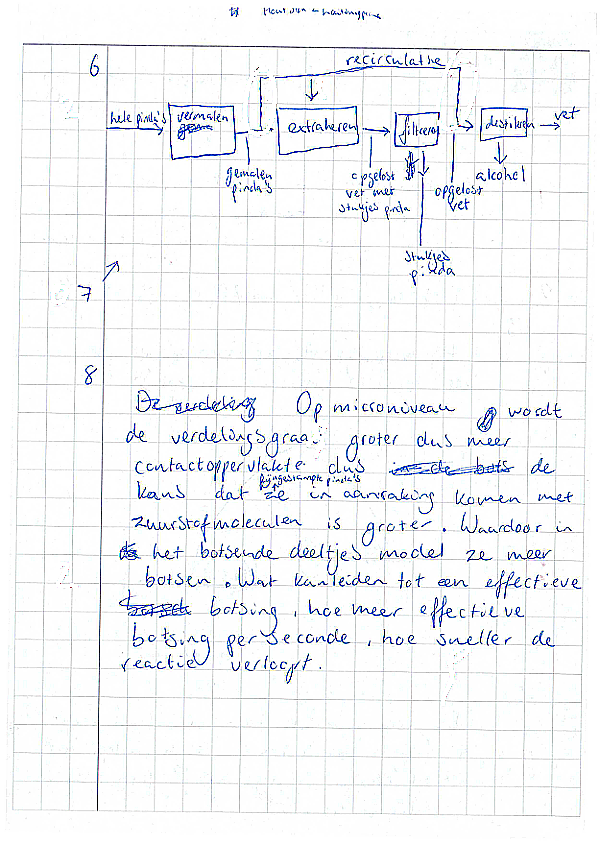 6
recirculatie
hele pinda's
vermalen
extraheren
filtreren
destileren
vet
gemalen
pinda's
opgelost
vet met
stukjes pinda
opgelost
vet
alcohol
stukjes
pinda
7
8
Op microniveau wordt
de verdelingsgraad groter dus meer
contactoppervlakte dus de
fijngestampte pinda's
kans dat ze in aanraking komen met
zuurstofmoleculen is groter. Waardoor in
het botsende deeltjes model ze meer
botsen. Wat kan leiden tot een effectieve
botsing, hoe meer effectieve
botsing per seconde, hoe sneller de
reactie verloopt.